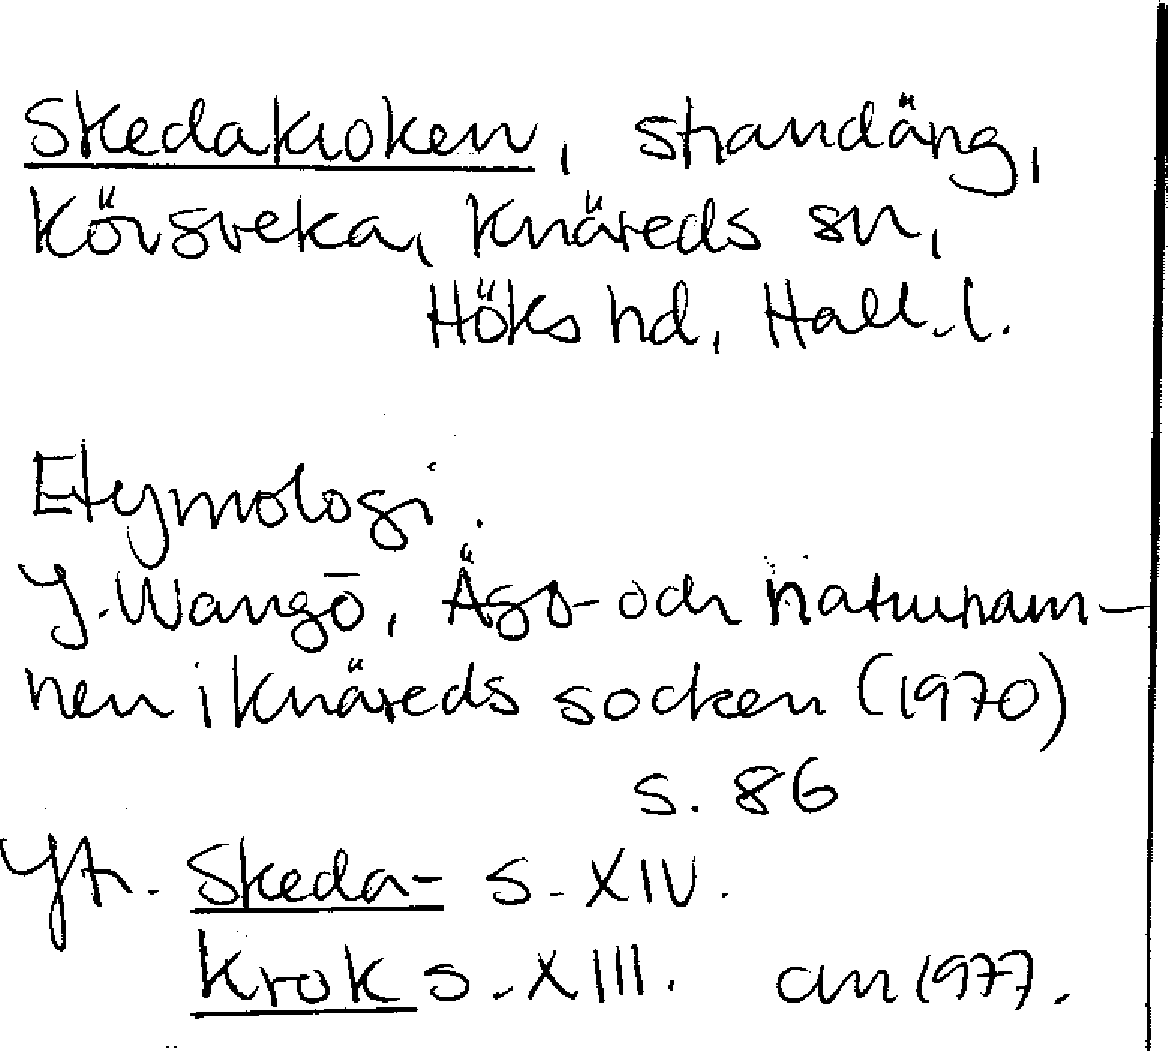 Skedakroken, strandäng,
Körsveka, Knäreds sn,
Höks hd, Hall. l.
Etymologi.
J. Wangö, Ägo- och naturnam-
nen i Knäreds socken (1970)
s. 86
Jfr. Skeda- s. XIV.
Krok s. XIII. am 1977.